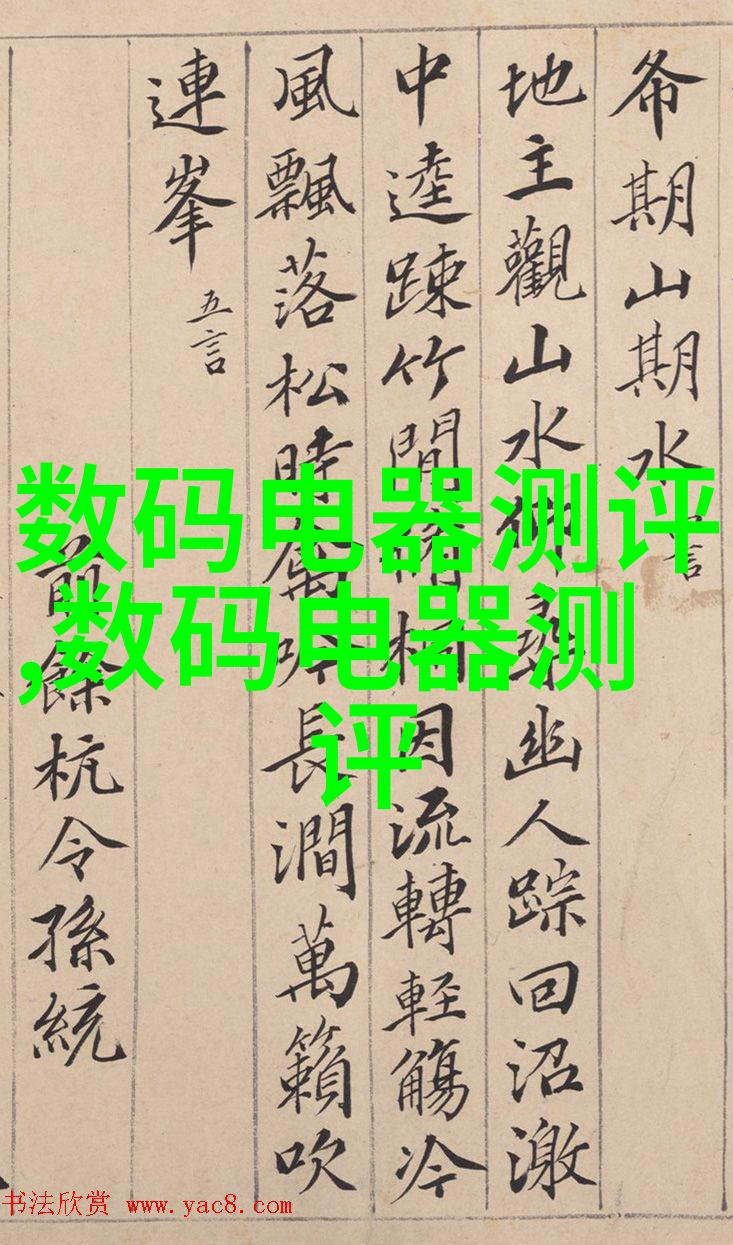 希期山期水 言
地主觀山水仰尋幽人踪回沼激
中逵踈竹間脩桐因流轉輕觴冷
風飄落松時禽吟長澗萬籟吹
連峯 五言
前餘杭令孫統
数码电器测评
,数码电器测
评
书法欣赏 www.yac8.com